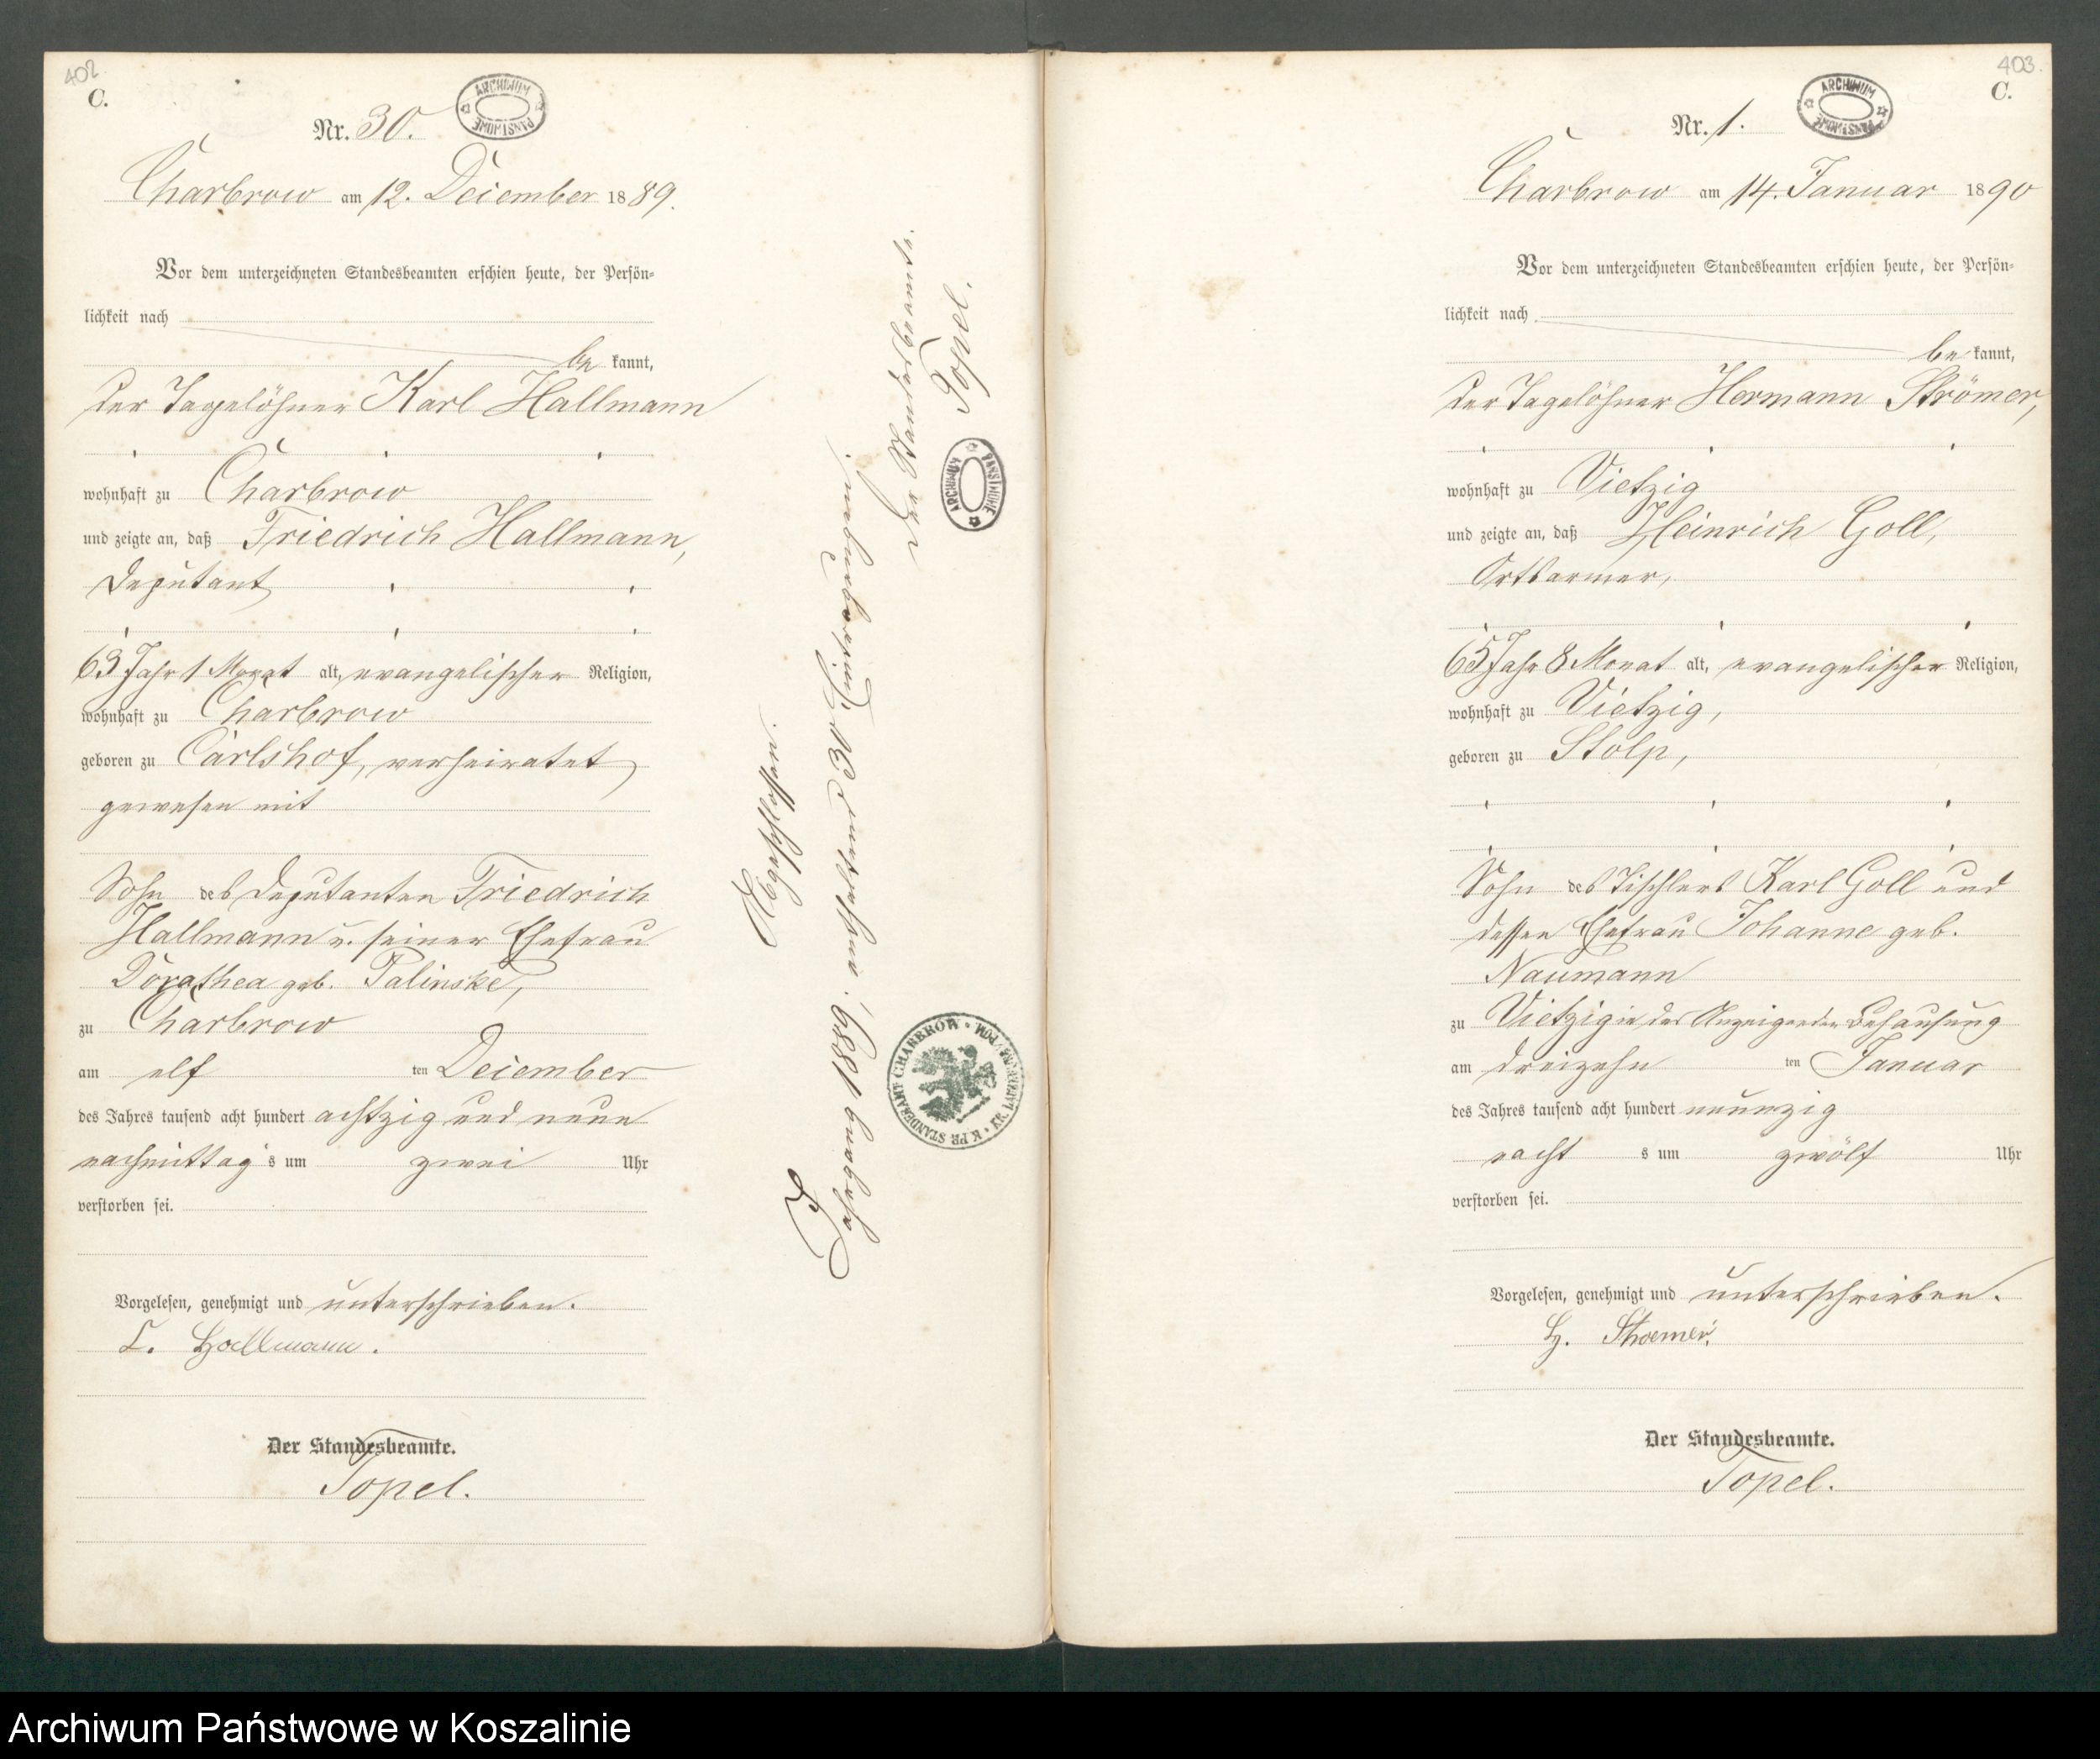 402
C.
Nr. 30.
ARCHIWUM PAŃSTWOWE
Charbrow am 12. December 1889.
Vor dem unterzeichneten Standesbeamten erschien heute, der Persön-
lichkeit nach
be kannt,
der Tagelöhner Karl Hallmann
wohnhaft zu Charbrow
und zeigte an, daß Friedrich Hallmann,
Deputant
63 Jahr 1 Monat alt, evangelischer Religion,
wohnhaft zu Charbrow
geboren zu Carlshof, verheiratet
gewesen mit
Sohn des Deputanten Friedrich
Hallmann u. seiner Ehefrau
Dorathea geb. Palinske,
zu Charbrow
am elf ten December
des Jahres tausend acht hundert achtzig und neun
nachmittag s um zwei Uhr
verstorben sei.
Vorgelesen, genehmigt und unterschrieben.
C. Hallmann.
Der Standesbeamte.
Topel.
Abgeschlossen.
Jahrgang 1889, enthaltend 30 Eintragungen.
Der Standesbeamte.
Topel.
ARCHIWUM PAŃSTWOWE
K. PR. STANDESAMT CHARBROW KR. LAUENBURG I/POM.
403.
C.
Nr. 1.
ARCHIWUM PAŃSTWOWE
Charbrow am 14. Januar 1890
Vor dem unterzeichneten Standesbeamten erschien heute, der Persön-
lichkeit nach
be kannt,
der Tagelöhner Hermann Strömer,
wohnhaft zu Vietzig
und zeigte an, daß Heinrich Goll,
Ortsarmer,
65 Jahr 8 Monat alt, evangelischer Religion,
wohnhaft zu Vietzig,
geboren zu Stolp,
Sohn des Tischlers Karl Goll und
dessen Ehefrau Johanne geb.
Naumann
zu Vietzig in des Anzeigenden Behausung
am dreizehn ten Januar
des Jahres tausend acht hundert neunzig
nacht s um zwölf Uhr
verstorben sei.
Vorgelesen, genehmigt und unterschrieben.
H. Stroemer.
Der Standesbeamte.
Topel.
Archiwum Państwowe w Koszalinie